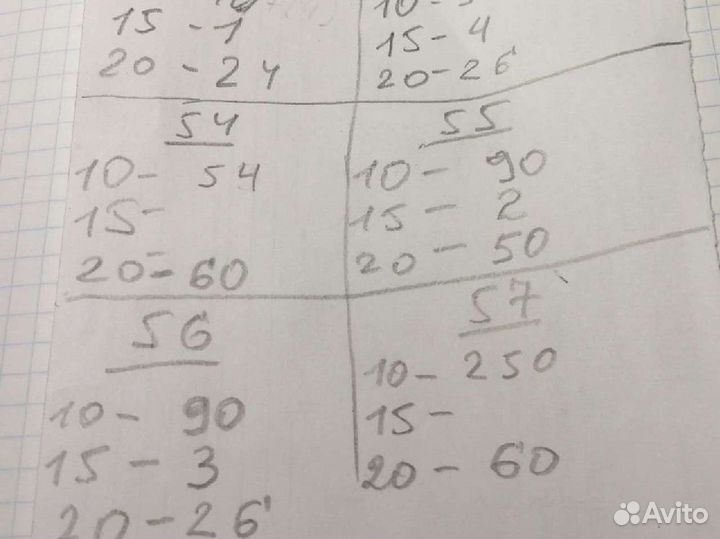 15 - 1
20 - 24
15 - 4
20 - 26
54
10 - 54
15 -
20 - 60
55
10 - 90
15 - 2
20 - 50
56
10 - 90
15 - 3
20 - 26
57
10 - 250
15 -
20 - 60
Avito